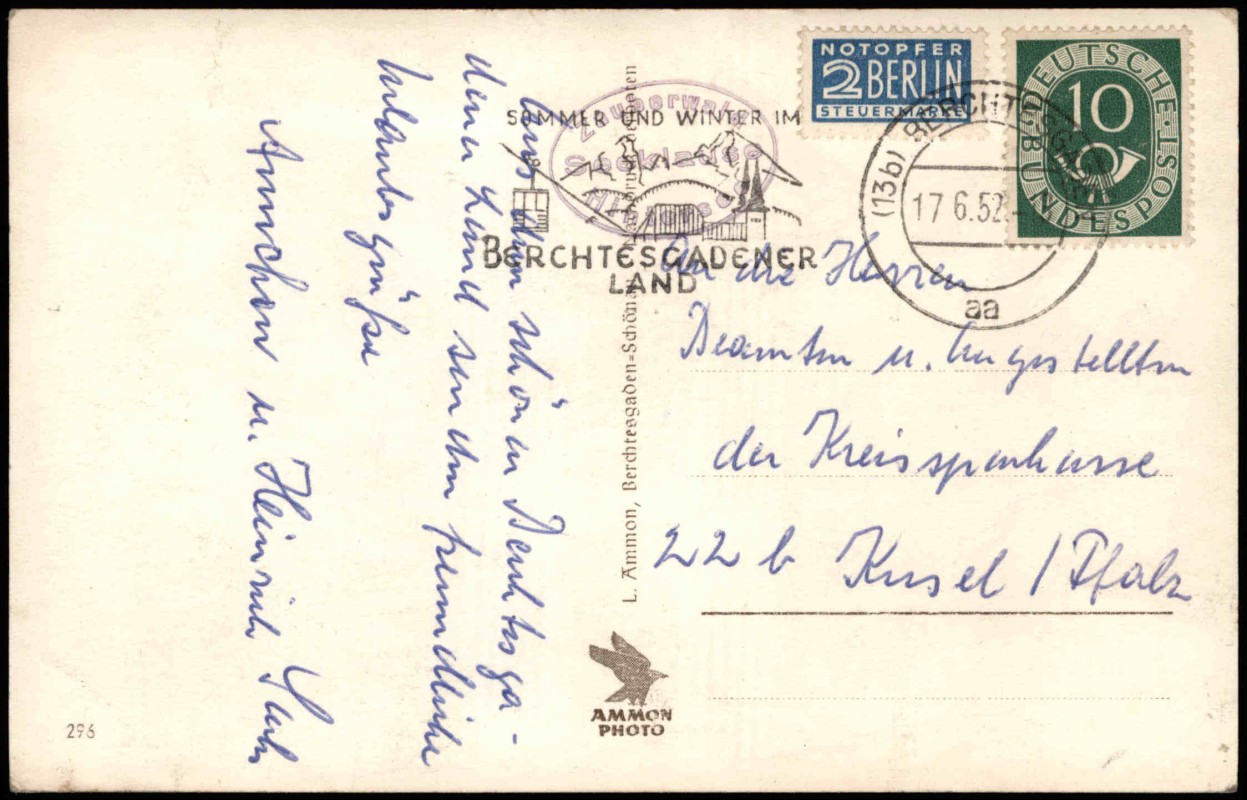 NOTOPFER
2 BERLIN
STEUERMARKE
DEUTSCHE
BUNDESPOST
10
(13b) BERCHTESGADEN
17.6.52.
aa
SOMMER UND WINTER IM
BERCHTESGADENER
LAND
Zauberwald
Seeklause
Hintersee
An die Herren
Beamten u. Angestellten
der Kreissparkasse
22 b Kusel / Pfalz
Aus dem schönen Berchtesga-
dener Land senden freundliche
Urlaubsgrüße
Ännchen u. Heinrich
L. Ammon, Berchtesgaden-Schönau Nachdruck verboten
AMMON
PHOTO
296